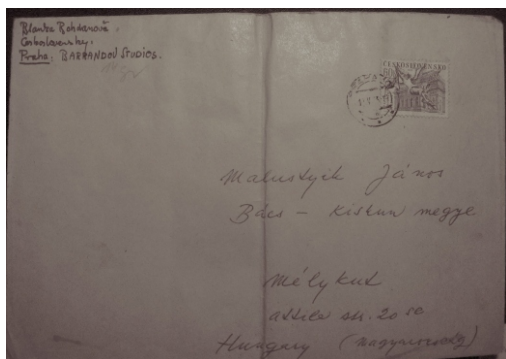 Blanka Bohdanová.
Československy.
Praha: BARRANDOV STUDIOS.
ČESKOSLOVENSKO
60
Malustyik János
Bács - Kiskun megye
Mélykut
attila u. 20 sz
Hungary (Magyarország)